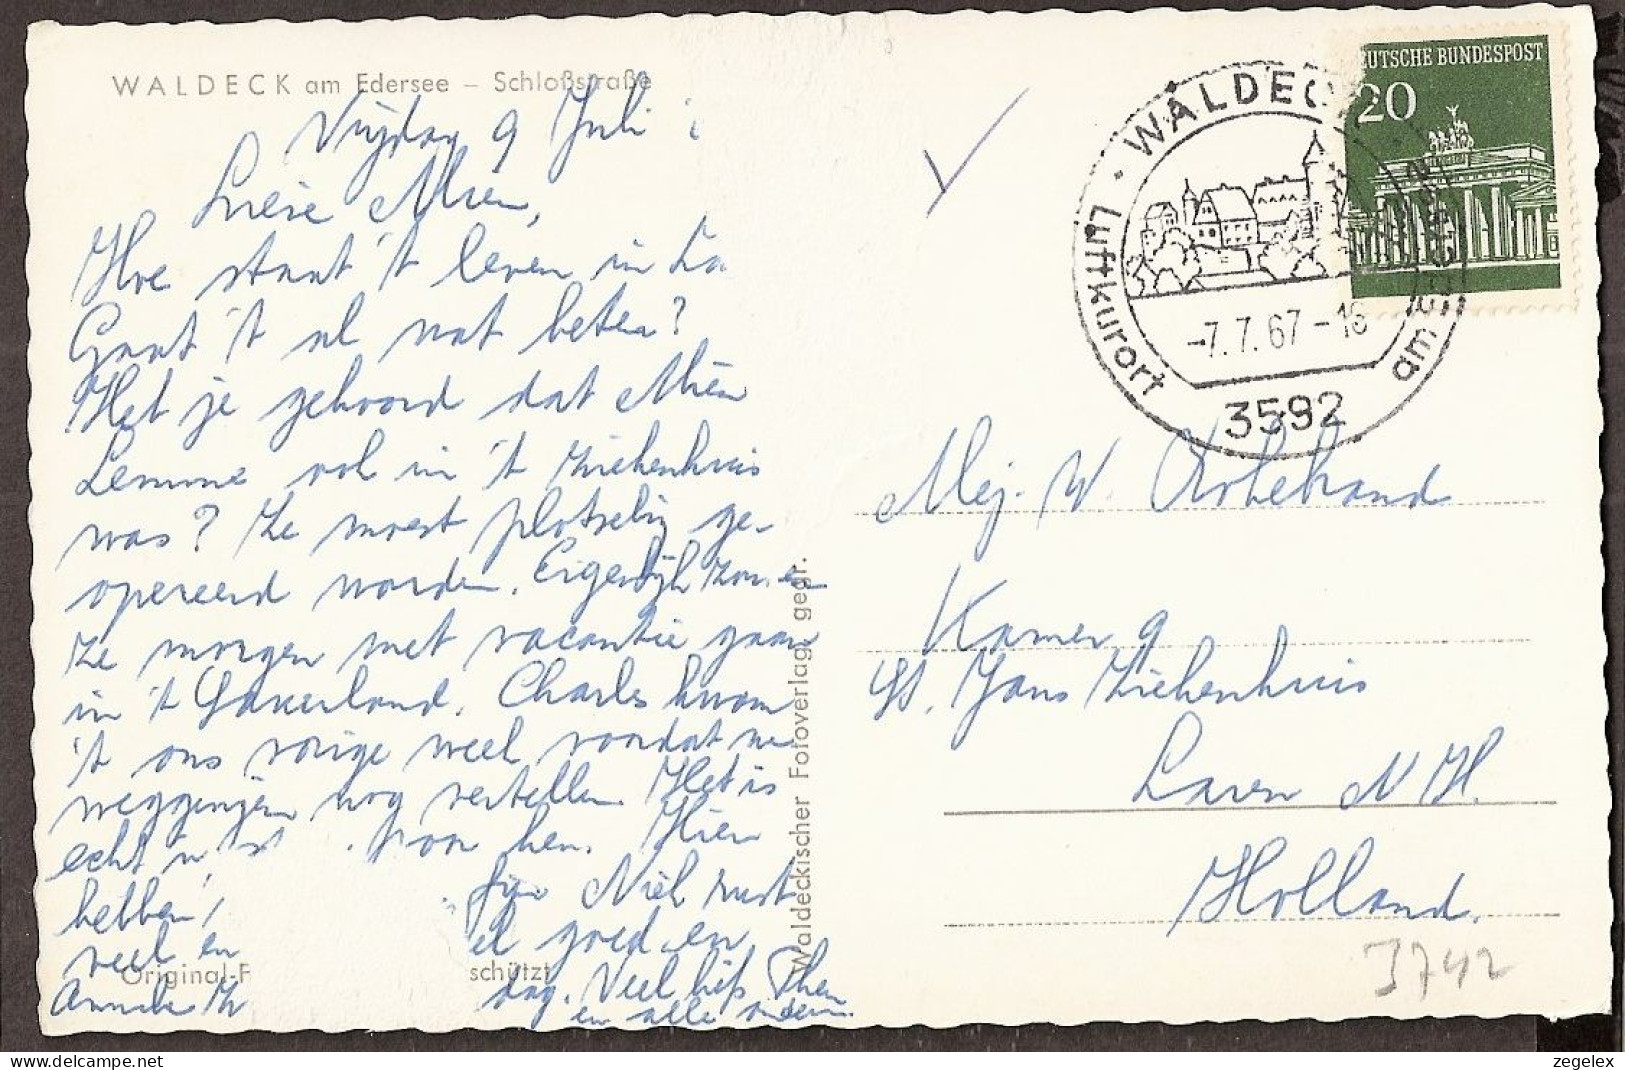 WALDECK am Edersee – Schloßstraße
Vrijdag 9 Juli
Lieve Mien,
Hoe staat 't leven in La
Gaat 't al wat beter?
Heb je gehoord dat Mien
Lemme ook in 't ziekenhuis
was? Ze moest plotseling ge-
opereerd worden. Eigenlijk zouden
ze morgen met vacantie gaan
in 't Sauerland. Charles kwam
't ons vorige week voordat we
weggingen nog vertellen. Het is
echt voor hen. Hier
hebben fijn Niek rust
veel en el goed en
Anneke dag. Veel liefs Theo
en alle anderen.
Original-F schützt
Waldeckischer Fotoverlag, gegr.
DEUTSCHE BUNDESPOST
20
WALDECK
Luftkurort
am
-7.7.67-18
3592
Mej. W.
Kamer 9
St. Jans Ziekenhuis
Laren N H.
Holland.
3742
zegelex